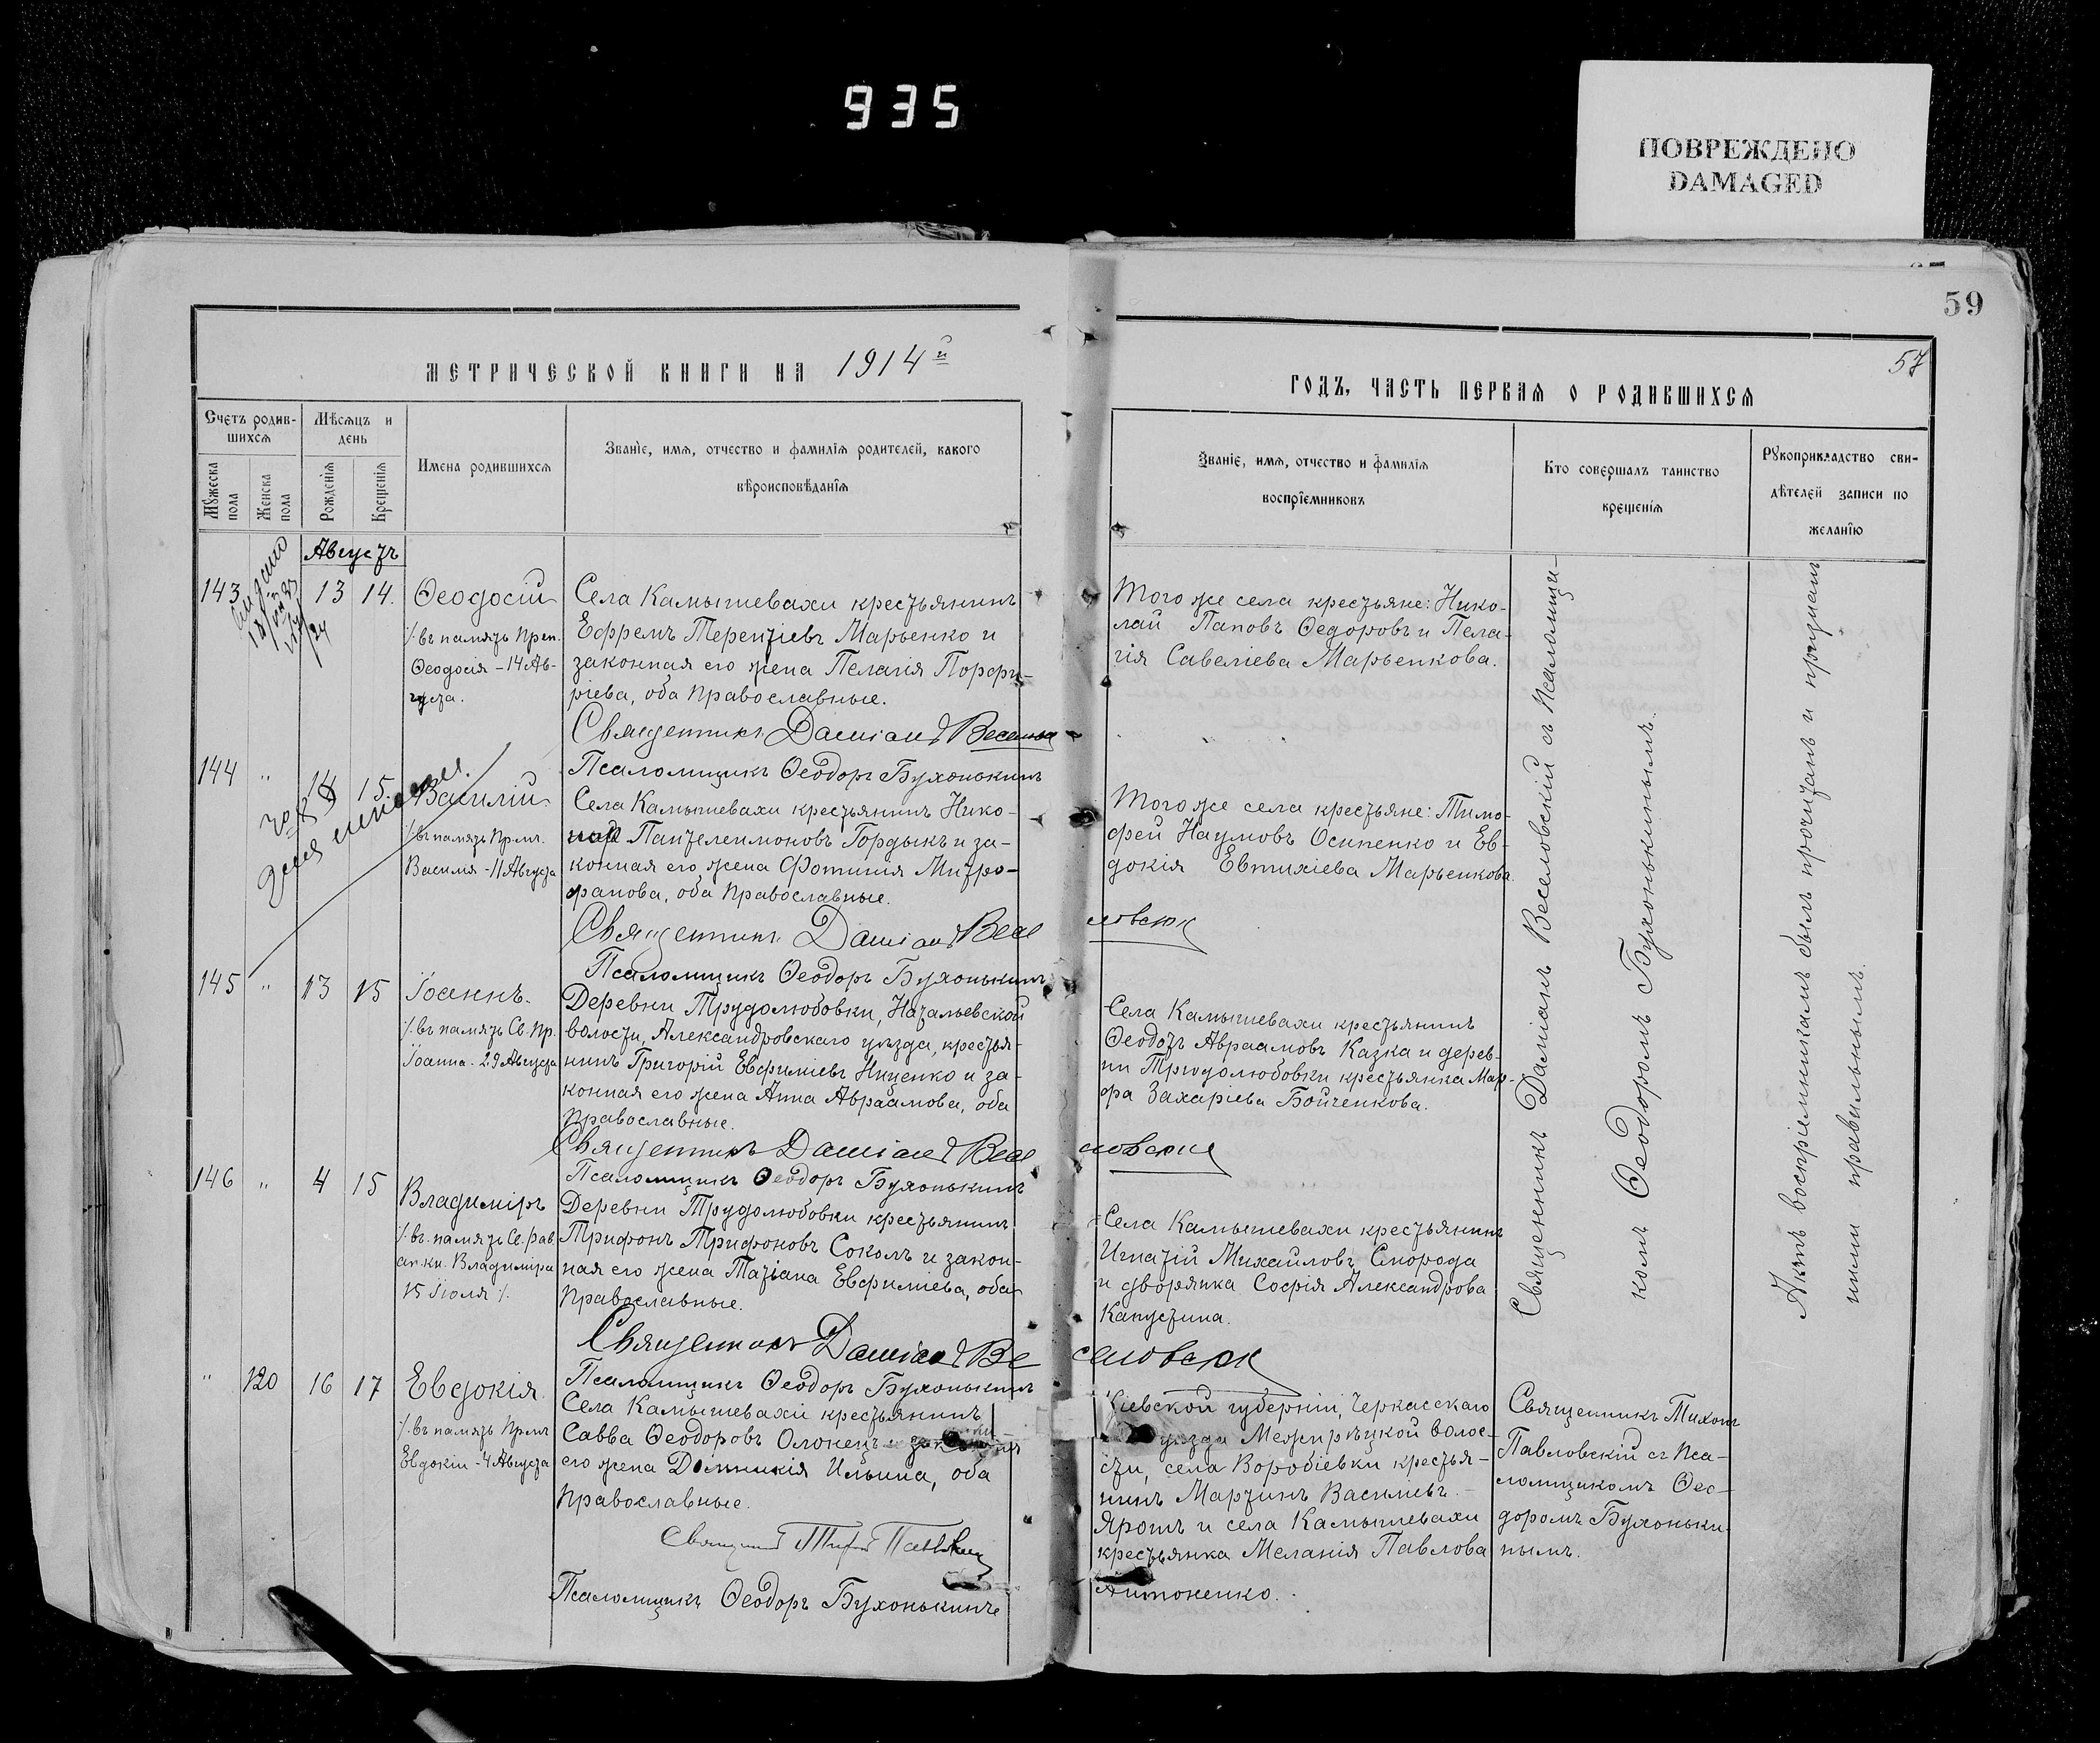 935
ПОВРЕЖДЕНО
DAMAGED
59
57
МЕТРИЧЕСКОЙ КНИГИ НА 1914й
ГОДЪ, ЧАСТЬ ПЕРВАЯ О РОДИВШИХСЯ
Счетъ родив-
шихся
Мужеска пола
Женска пола
Мѣсяцъ и
день
Рожденія
Крещенія
Имена родившихся
Званіе, имя, отчество и фамилія родителей, какого
вѣроисповѣданія
Званіе, имя, отчество и фамилія
воспріемниковъ
Кто совершалъ таинство
крещенія
Рукоприкладство сви-
дѣтелей записи по
желанію
Августъ
143
13 14.
Ѳеодосій
/. въ память Преп.
Ѳеодосія - 14 Ав-
густа.
Села Камышевахи крестьянинъ
Ефремъ Терентіевъ Марьенко и
законная его жена Пелагія Порфи-
ріева, оба Православные.
Священникъ Даміанъ Веселов
Псаломщикъ Ѳеодоръ Бухонькинъ
Того же села крестьяне: Нико-
лай Паповъ Ѳедоровъ и Пела-
гія Савеліева Марьенкова.
144 " 14 15.
Василій
/. въ память Прмч.
Василія - 11 Августа
Села Камышевахи крестьянинъ Нико-
Пантелеимоновъ Гордыкъ и за-
конная его жена Фотинія Митро-
фанова, оба Православные.
Священникъ Даміанъ Весе ловскій
Псаломщикъ Ѳеодоръ Бухонькинъ
Того же села крестьяне: Тимо-
фей Наумовъ Осипенко и Ев-
докія Евтихіева Марьенкова.
145 " 13 15
Іоаннъ.
/. въ память Св. Пр.
Іоанна - 29 Августа
Деревни Трудолюбовки, Натальевской
волости, Александровскаго уѣзда, крестья-
нинъ Григорій Евфиміевъ Ниценко и за-
конная его жена Анна Авраамова, оба
Православные.
Священникъ Даміанъ Весе ловскій
Псаломщикъ Ѳеодоръ Бухонькинъ
Села Камышевахи крестьянинъ
Ѳеодотъ Авраамовъ Казка и дерев-
ни Трудолюбовки крестьянка Мар-
фа Захаріева Бойченкова.
146 " 4 15
Владиміръ
/. въ память Св. рав
ап. кн. Владиміра
15 Іюля /.
Деревни Трудолюбовки крестьянинъ
Трифонъ Трифоновъ Соколъ и закон-
ная его жена Татіана Евфиміева, оба
Православные.
Священникъ Даміанъ Ве селовск
Псаломщикъ Ѳеодоръ Бухонькинъ
Села Камышевахи крестьянинъ
Игнатій Михайловъ Скорода
и дворянка Софія Александрова
Капустина.
" 120 16 17
Евдокія
/. въ память Прмч
Евдокіи - 4 Августа
Села Камышевахи крестьянинъ
Савва Ѳеодоровъ Олонецъ
его жена Домникія Ильина, оба
Православные.
Псаломщикъ Ѳеодоръ Бухонькинъ
Кіевской губерніи, Черкасскаго
уѣзда Межирѣцкой волос-
сти, села Воробіевки крестья-
нинъ Мартинъ Василіевъ
Ярошъ и села Камышевахи
крестьянка Меланія Павлова
Антоненко.
Священникъ Тихонъ
Павловскій съ Пса-
ломщикомъ Ѳео-
доромъ Бухоньки-
нымъ.
Священникъ Даміанъ Веселовскій съ Псаломщи-
комъ Ѳеодоромъ Бухонькинымъ.
Актъ воспріемникамъ былъ прочитанъ и признанъ
ними правильнымъ.